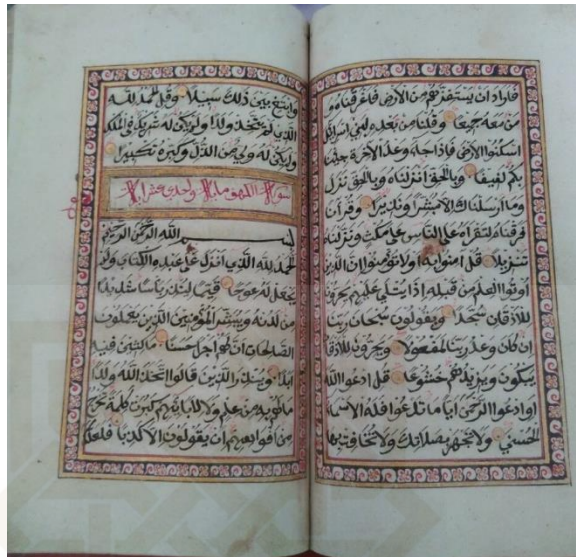 فاراد ان يستفزهم من الارض فاغرقناه و
من معه جميعا وقلنا من بعده لبني اسرائيل
اسكنوا الارض فاذا جاء وعد الاخرة جئنا
بكم لفيفا وبالحق انزلناه وبالحق نزل
وما ارسلناك الا مبشرا ونذيرا وقرآن
فرقناه لتقراه على الناس على مكث ونزلناه
تنزيلا قل امنوا به او لا تؤمنوا ان الذين
اوتوا العلم من قبله اذا يتلى عليهم يخرون
للاذقان سجدا ويقولون سبحان ربنا
ان كان وعد ربنا لمفعولا ويخرون للاذقا
يبكون ويزيدهم خشوعا قل ادعوا الله
او ادعوا الرحمن ايا ما تدعوا فله الاسماء
الحسنى ولا تجهر بصلاتك ولا تخافت بها
وابتغ بين ذلك سبيلا وقل الحمد لله
الذي لم يتخذ ولدا ولم يكن له شريك في الملك
ولم يكن له ولي من الذل وكبره تكبيرا
سورة الكهف مائة واحدى عشر اية
بسم الله الرحمن الرحيم
الحمد لله الذي انزل على عبده الكتاب ولم
يجعل له عوجا قيما لينذر باسا شديدا
من لدنه ويبشر المؤمنين الذين يعملون
الصالحات ان لهم اجرا حسنا ماكثين فيه
ابدا وينذر الذين قالوا اتخذ الله ولدا
ما لهم به من علم ولا لابائهم كبرت كلمة تخرج
من افواههم ان يقولون الا كذبا فلعلك